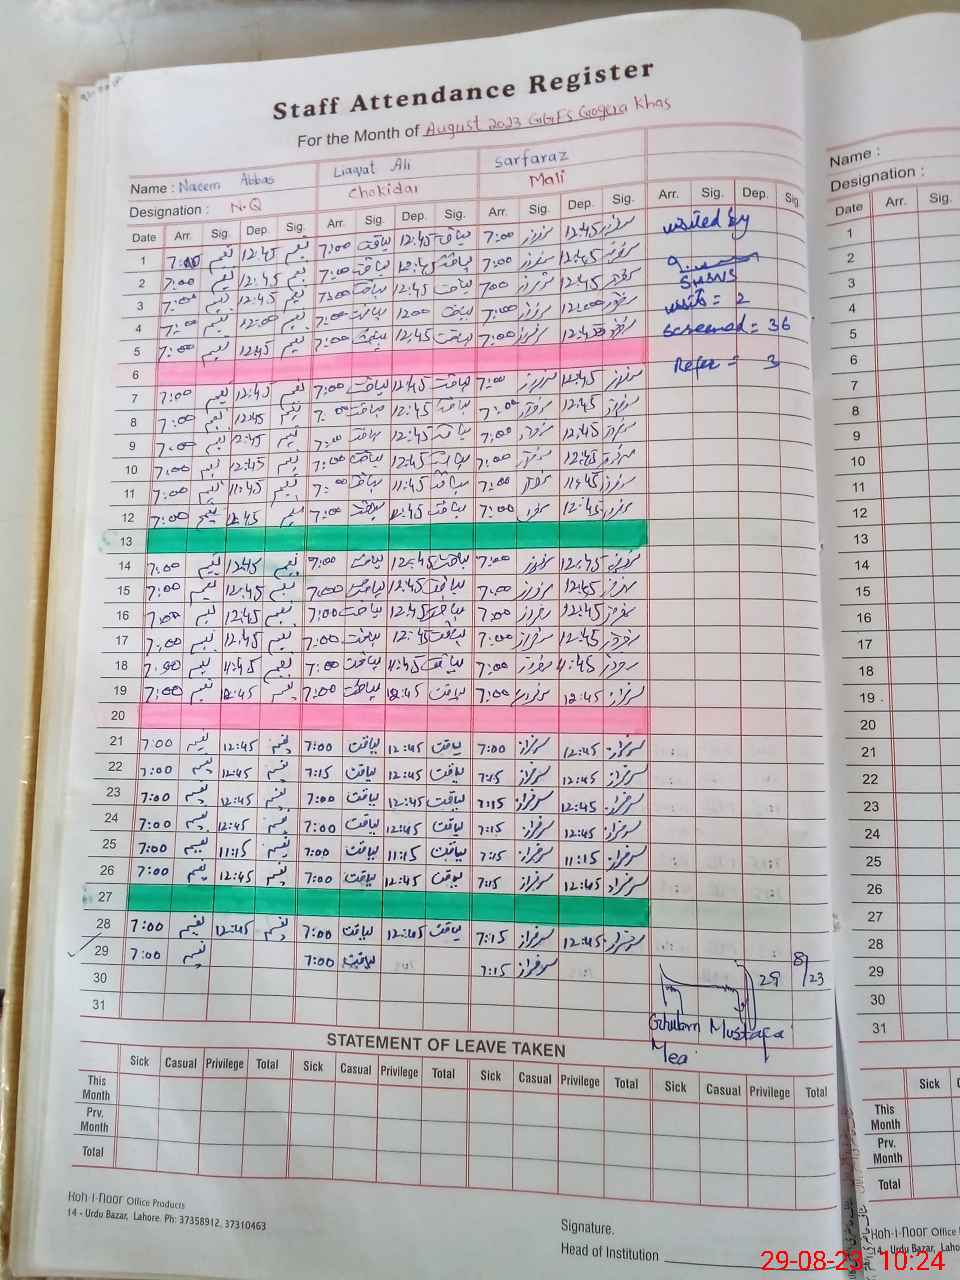 Staff Attendance Register
For the Month of August 2023 GGES Gogera Khas
Name : Naeem Abbas Liaqat Ali Sarfaraz
Designation : N.Q Chokidar Mali
Date Arr. Sig. Dep. Sig. Arr. Sig. Dep. Sig. Arr. Sig. Dep. Sig. Arr. Sig. Dep. Sig.
1 7:00 نعیم 12:45 نعیم 7:00 لیاقت 12:45 لیاقت 7:00 سرفراز 12:45 سرفراز
2 7:00 نعیم 12:45 نعیم 7:00 لیاقت 12:45 لیاقت 7:00 سرفراز 12:45 سرفراز
3 7:00 نعیم 12:45 نعیم 7:00 لیاقت 12:45 لیاقت 7:00 سرفراز 12:45 سرفراز
4 7:00 نعیم 12:00 نعیم 7:00 لیاقت 12:00 لیاقت 7:00 سرفراز 12:00 سرفراز
5 7:00 نعیم 12:45 نعیم 7:00 لیاقت 12:45 لیاقت 7:00 سرفراز 12:45 سرفراز
6
7 7:00 نعیم 12:45 نعیم 7:00 لیاقت 12:45 لیاقت 7:00 سرفراز 12:45 سرفراز
8 7:00 نعیم 12:45 نعیم 7:00 لیاقت 12:45 لیاقت 7:00 سرفراز 12:45 سرفراز
9 7:00 نعیم 12:45 نعیم 7:00 لیاقت 12:45 لیاقت 7:00 سرفراز 12:45 سرفراز
10 7:00 نعیم 12:45 نعیم 7:00 لیاقت 12:45 لیاقت 7:00 سرفراز 12:45 سرفراز
11 7:00 نعیم 11:45 نعیم 7:00 لیاقت 11:45 لیاقت 7:00 سرفراز 11:45 سرفراز
12 7:00 نعیم 12:45 نعیم 7:00 لیاقت 12:45 لیاقت 7:00 سرفراز 12:45 سرفراز
13
14 7:00 نعیم 12:45 نعیم 7:00 لیاقت 12:45 لیاقت 7:00 سرفراز 12:45 سرفراز
15 7:00 نعیم 12:45 نعیم 7:00 لیاقت 12:45 لیاقت 7:00 سرفراز 12:45 سرفراز
16 7:00 نعیم 12:45 نعیم 7:00 لیاقت 12:45 لیاقت 7:00 سرفراز 12:45 سرفراز
17 7:00 نعیم 12:45 نعیم 7:00 لیاقت 12:45 لیاقت 7:00 سرفراز 12:45 سرفراز
18 7:00 نعیم 11:45 نعیم 7:00 لیاقت 11:45 لیاقت 7:00 سرفراز 11:45 سرفراز
19 7:00 نعیم 12:45 نعیم 7:00 لیاقت 12:45 لیاقت 7:00 سرفراز 12:45 سرفراز
20
21 7:00 نعیم 12:45 نعیم 7:00 لیاقت 12:45 لیاقت 7:00 سرفراز 12:45 سرفراز
22 7:00 نعیم 12:45 نعیم 7:15 لیاقت 12:45 لیاقت 7:15 سرفراز 12:45 سرفراز
23 7:00 نعیم 12:45 نعیم 7:00 لیاقت 12:45 لیاقت 7:15 سرفراز 12:45 سرفراز
24 7:00 نعیم 12:45 نعیم 7:00 لیاقت 12:45 لیاقت 7:15 سرفراز 12:45 سرفراز
25 7:00 نعیم 11:15 نعیم 7:00 لیاقت 11:15 لیاقت 7:15 سرفراز 11:15 سرفراز
26 7:00 نعیم 12:45 نعیم 7:00 لیاقت 12:45 لیاقت 7:15 سرفراز 12:45 سرفراز
27
28 7:00 نعیم 12:45 نعیم 7:00 لیاقت 12:45 لیاقت 7:15 سرفراز 12:45 سرفراز
29 7:00 نعیم 7:00 لیاقت 7:15 سرفراز
30
31
visited by
SH&NS
visits = 2
screened = 36
Refer = 3
29/8/23
Ghulam Mustafa
Mea
STATEMENT OF LEAVE TAKEN
Sick Casual Privilege Total Sick Casual Privilege Total Sick Casual Privilege Total Sick Casual Privilege Total
This Month
Prv. Month
Total
Koh-i-noor Office Products
14 - Urdu Bazar, Lahore. Ph: 37358912, 37310463
Signature.
Head of Institution
Name :
Designation :
Date Arr. Sig.
1
2
3
4
5
6
7
8
9
10
11
12
13
14
15
16
17
18
19
20
21
22
23
24
25
26
27
28
29
30
31
Sick
This Month
Prv. Month
Total
Koh-i-noor Office
14 - Urdu Bazar, Laho
29-08-23 10:24